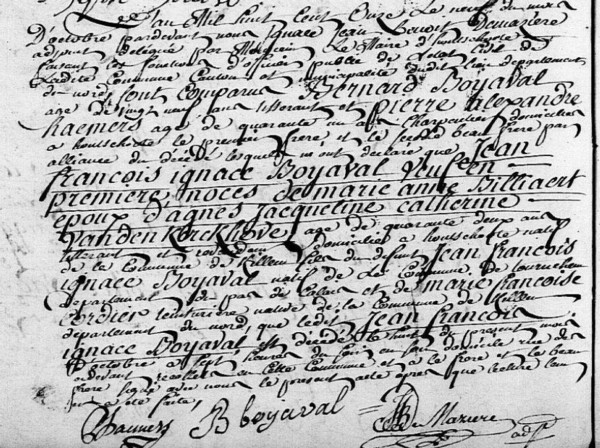 L'an Mil huit Cent Onze Le neuf du mois
D'octobre pardevant nous ignace Jean Benoit Demazière
adjoint délégué par Monsieur Le Maire d'hondschoote
faisant les fonctions d'officier publiq de l'état civil de
Ladite Commune Canton et municipalité dudit lieu département
du nord, sont comparus Bernard Boyaval
age de vingt neuf ans tisserant et pierre alexandre
haemers age de quarante ans Charpentier domiciliés
a hondschoote le premier frere et le second beau frere par
alliance du décédé lesquels m'ont déclaré que Jean
françois ignace Boyaval veuf en
premiere noces de marie anne Billiaert
epoux d'agnes Jacqueline catherine
Vandenkerckhove, age de quarante deux ans
tisserant et domicilié a hondschoote natif
de la Commune de Killem fils du défunt Jean françois
ignace Boyaval natif de la Commune de
departement du pas de Calais et de marie françoise
Cordier teinturiere native de la Commune de Killem
département du nord, que ledit Jean françois
ignace Boyaval, est décédé le huit du present mois
d'octobre a sept heures du soir en son domicile rue des
en cette Commune et a le frere et le beau
frere signé avec nous le present acte apres que lecture leur
en a été faite,
Haemers B boyaval de Maziere adjt